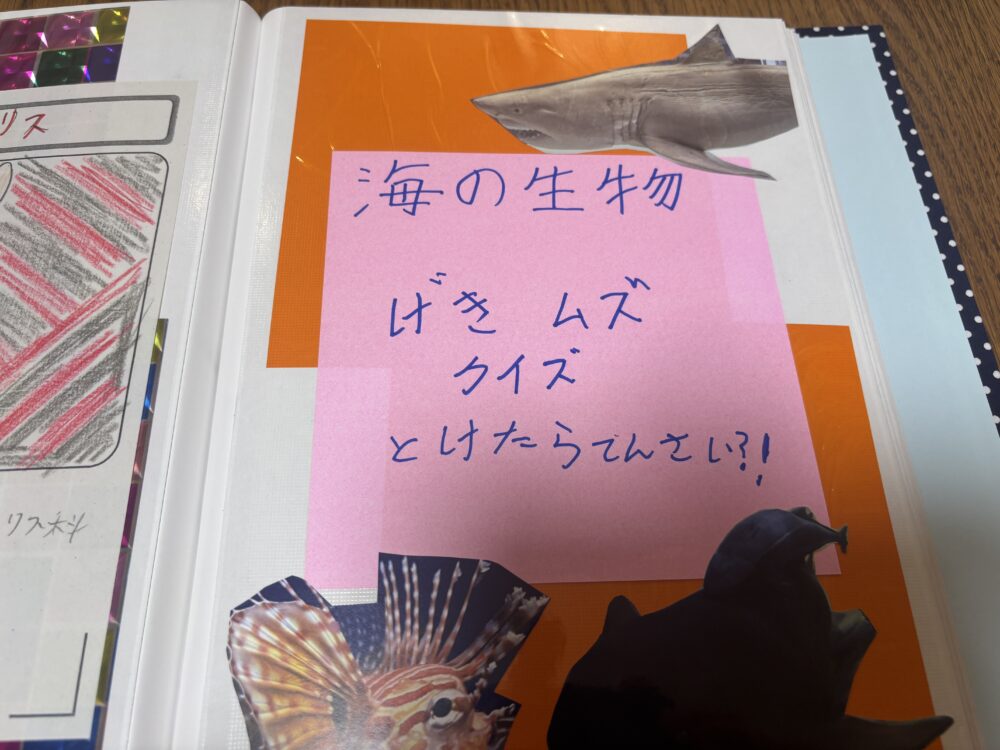 リス
リス科
海の生物
げき ムズ
クイズ
とけたらてんさい?!